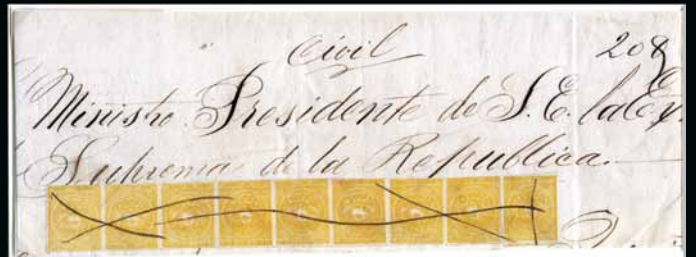 Civil 208
Ministro Presidente de S. E. la Ex.
Suprema de la Republica.